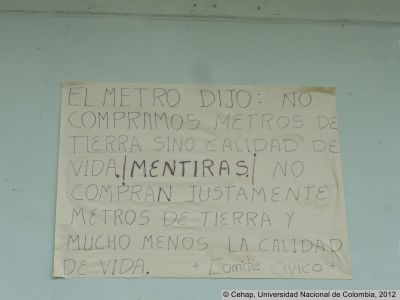 EL METRO DIJO: NO
COMPRAMOS METROS DE
TIERRA SINO CALIDAD DE
VIDA. ¡MENTIRAS! NO
COMPRAN JUSTAMENTE
METROS DE TIERRA Y
MUCHO MENOS LA CALIDAD
DE VIDA. + Comite Civico +
© Cehap, Universidad Nacional de Colombia, 2012